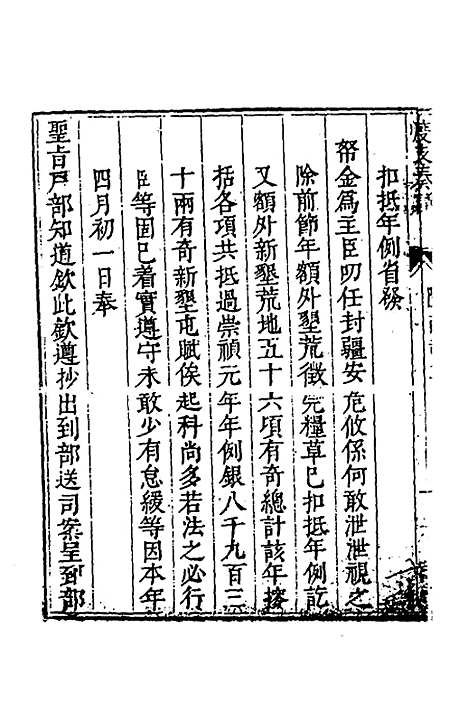 扣抵年例省發
帑金爲主臣叨任封疆安危攸係何敢泄泄視之
除前節年額外墾荒徵完糧草已扣抵年例訖
又額外新墾荒地五十六項有奇總計該年搜
括各項共抵過崇禎元年年例銀八千九百三
十兩有奇新墾屯賦俟起科尚多若法之必行
臣等固已着實遵守未敢少有怠緩等因本年
四月初一日奉
聖旨戶部知道欽此欽遵抄出到部送司案呈到部